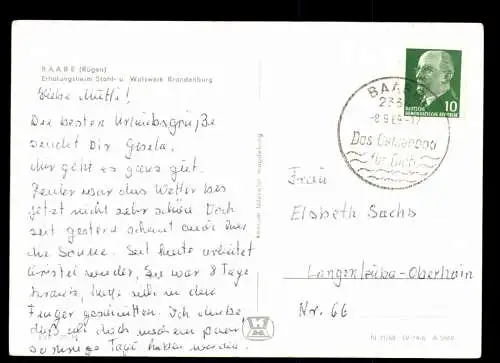 BAABE (Rügen)
Erholungsheim Stahl- u. Walzwerk Brandenburg
Liebe Mutti!
Die besten Urlaubsgrüße
sendet Dir Gisela.
Mir geht es ganz gut.
Leider war das Wetter bis
jetzt nicht sehr schön. Doch
seit gestern scheint auch hier
die Sonne. Seit heute arbeitet
wieder, Sie war 8 Tage
krank, hatte sich in den
Finger geschnitten. Ich denke,
daß ich doch noch ein paar
sonnige Tage haben werde.
BAABE
233
-8.9.69-17
Das Ostseebad
für Dich
DEUTSCHE
DEMOKRATISCHE REPUBLIK
10
Frau
Elsbeth Sachs
Langenleuba-Oberhain
Nr. 66